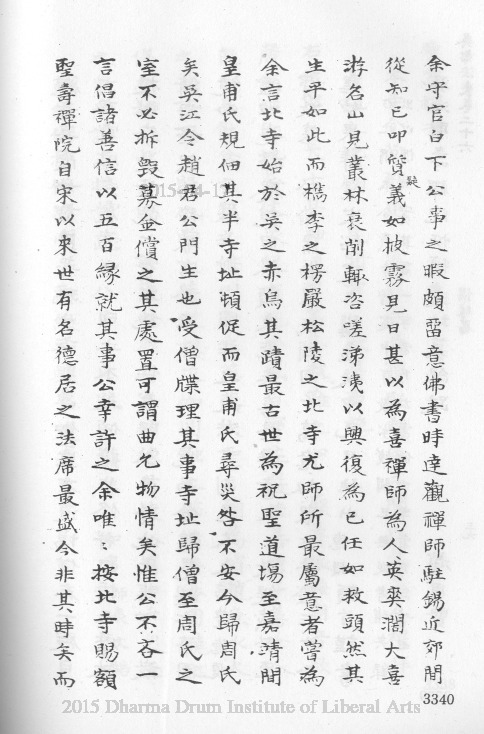 余守官白下公事之暇頗畱意佛書時達觀禪師駐錫近郊間
從知己叩質疑義如披霧見日甚以為喜禪師為人英爽濶大喜
游名山見叢林衰削輒咨嗟涕洟以興復為己任如救頭然其
生平如此而檇李之楞嚴松陵之北寺尤師所最屬意者嘗為
余言北寺始於吳之赤烏其蹟最古世為祝聖道場至嘉靖間
皇甫氏規佃其半寺址頓促而皇甫氏尋災咎不安今歸周氏
矣吳江令趙君公門生也受僧牒理其事寺址歸僧至周氏之
室不必拆毀募金償之其處置可謂曲允物情矣惟公不吝一
言倡諸善信以五百緣就其事公幸許之余唯〻按北寺賜額
聖壽禪院自宋以來世有名德居之法席最盛今非其時矣而
3340
2015 Dharma Drum Institute of Liberal Arts